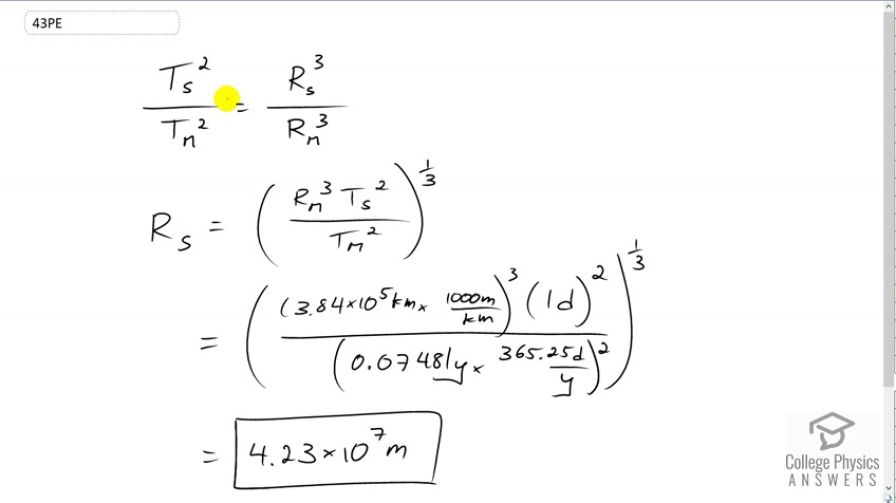 43PE
T_s^2 / T_m^2 = R_s^3 / R_m^3
R_s = ( R_m^3 T_s^2 / T_m^2 )^(1/3)
= ( (3.84×10^5 km × 1000m/km)^3 (1d)^2 / (0.07481y × 365.25d/y)^2 )^(1/3)
= 4.23×10^7 m
College Physics
ANSWERS